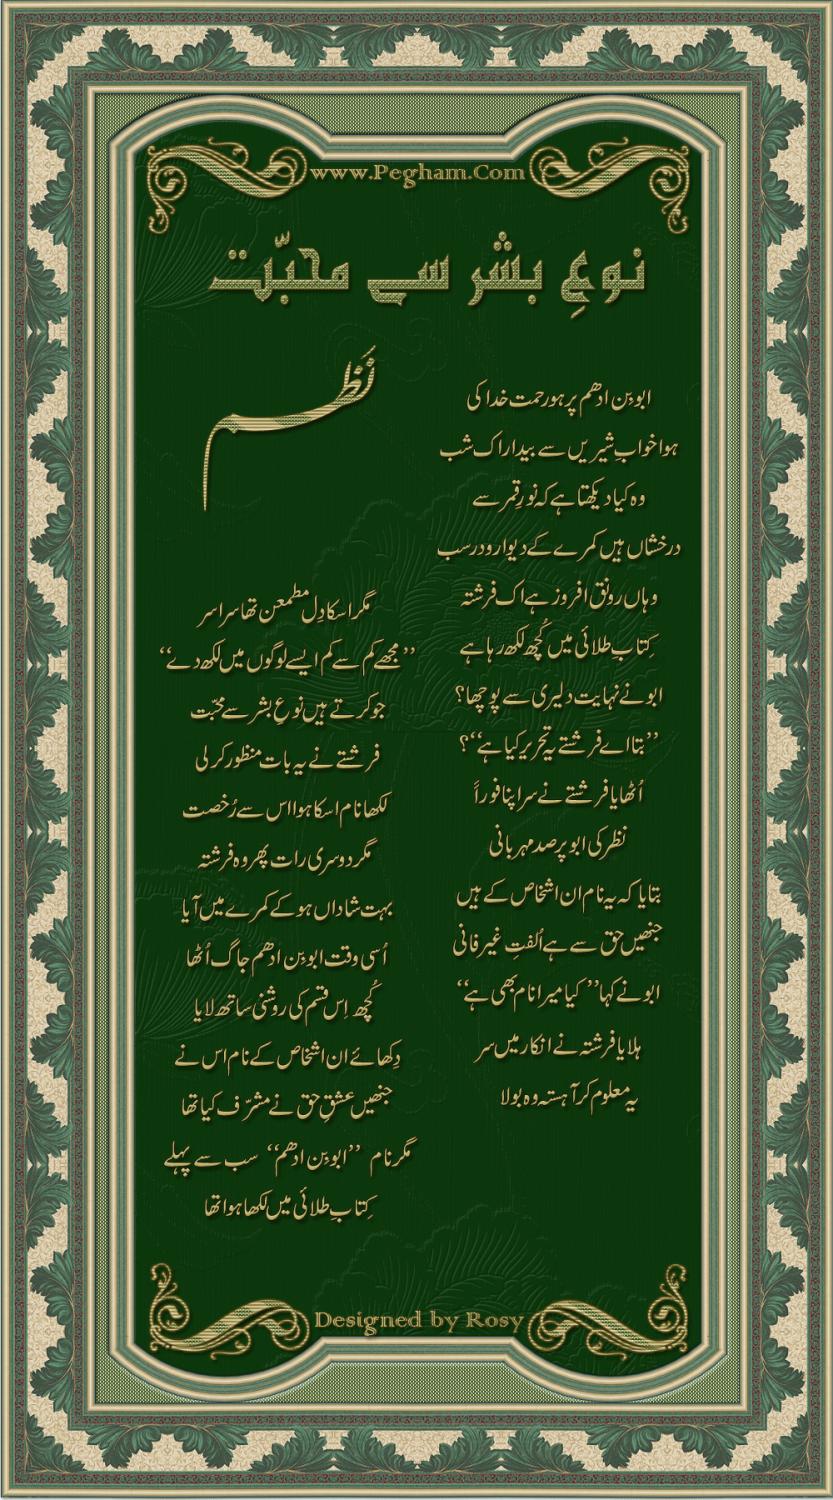 www.Pegham.Com
نوعِ بشر سے محبّت
نَظم
ابو بن ادھم پر ہو رحمت خدا کی
ہوا خوابِ شیریں سے بیدار اک شب
وہ کیا دیکھتا ہے کہ نورِ قمر سے
درخشاں ہیں کمرے کے دیوار و در سب
وہاں رونق افروز ہے اک فرشتہ
کِتابِ طلائی میں کُچھ لکھ رہا ہے
ابو نے نہایت دلیری سے پوچھا؟
’’بتا اے فرشتے یہ تحریر کیا ہے‘‘؟
اُٹھایا فرشتے نے سر اپنا فوراً
نظر کی ابو پر صد مہربانی
بتایا کہ یہ نام ان اشخاص کے ہیں
جنھیں حق سے ہے اُلفتِ غیر فانی
ابو نے کہا ’’کیا میرا نام بھی ہے‘‘
ہلایا فرشتہ نے انکار میں سر
یہ معلوم کر آہستہ وہ بولا
مگر اسکا دِل مطمعن تھا سراسر
’’مجھے کم سے کم ایسے لوگوں میں لکھ دے‘‘
جو کرتے ہیں نوعِ بشر سے محبّت
فرشتے نے یہ بات منظور کر لی
لکھا نام اسکا ہوا اس سے رُخصت
مگر دوسری رات پھر وہ فرشتہ
بہت شاداں ہو کے کمرے میں آیا
اُسی وقت ابو بن ادھم جاگ اُٹھا
کُچھ اِس قسم کی روشنی ساتھ لایا
دِکھائے ان اشخاص کے نام اس نے
جنھیں عشقِ حق نے مشرّف کیا تھا
مگر نام ’’ابو بن ادھم‘‘ سب سے پہلے
کِتابِ طلائی میں لکھا ہوا تھا
Designed by Rosy